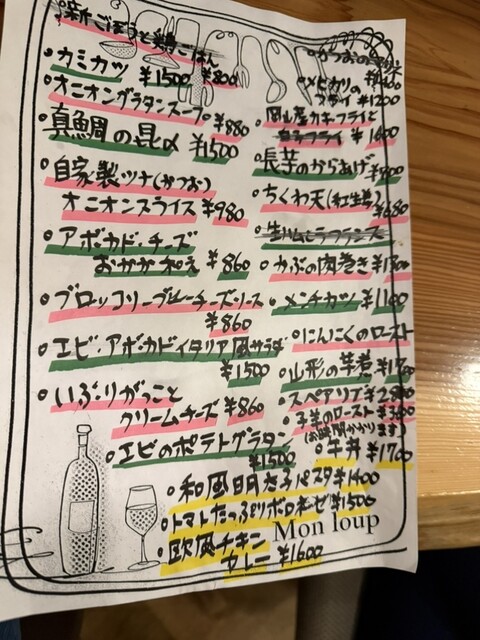 新ごぼうと鶏ごはん
¥800
カミカツ ¥1500
オニオングラタンスープ
¥880
真鯛の昆〆
¥1500
自家製ツナ(かつお)
オニオンスライス ¥980
アボカド・チーズ
おかか和え ¥860
ブロッコリーブルーチーズソース
¥860
エビ・アボカドイタリア風サラダ
¥1500
いぶりがっこと
クリームチーズ ¥860
エビのポテトグラタン
¥1500
メヒカリの
フライ ¥1200
岡山産カキフライと
¥1600
長芋のからあげ
ちくわ天(紅生姜)
¥680
生ハムとラフランス
かぶの肉巻き
メンチカツ ¥1100
にんにくのロースト
山形の芋煮
スペアリブ
子羊のロースト
(お時間かかります)
牛丼 ¥1700
和風明太子パスタ ¥1400
トマトたっぷりボロネーゼ ¥1500
Mon loup
欧風チキン
カレー ¥1600